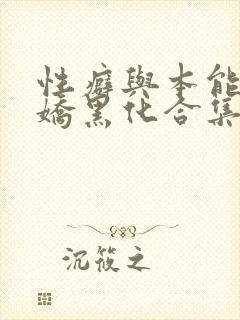 性癖與本能
嬌黑化合集
沉筱之